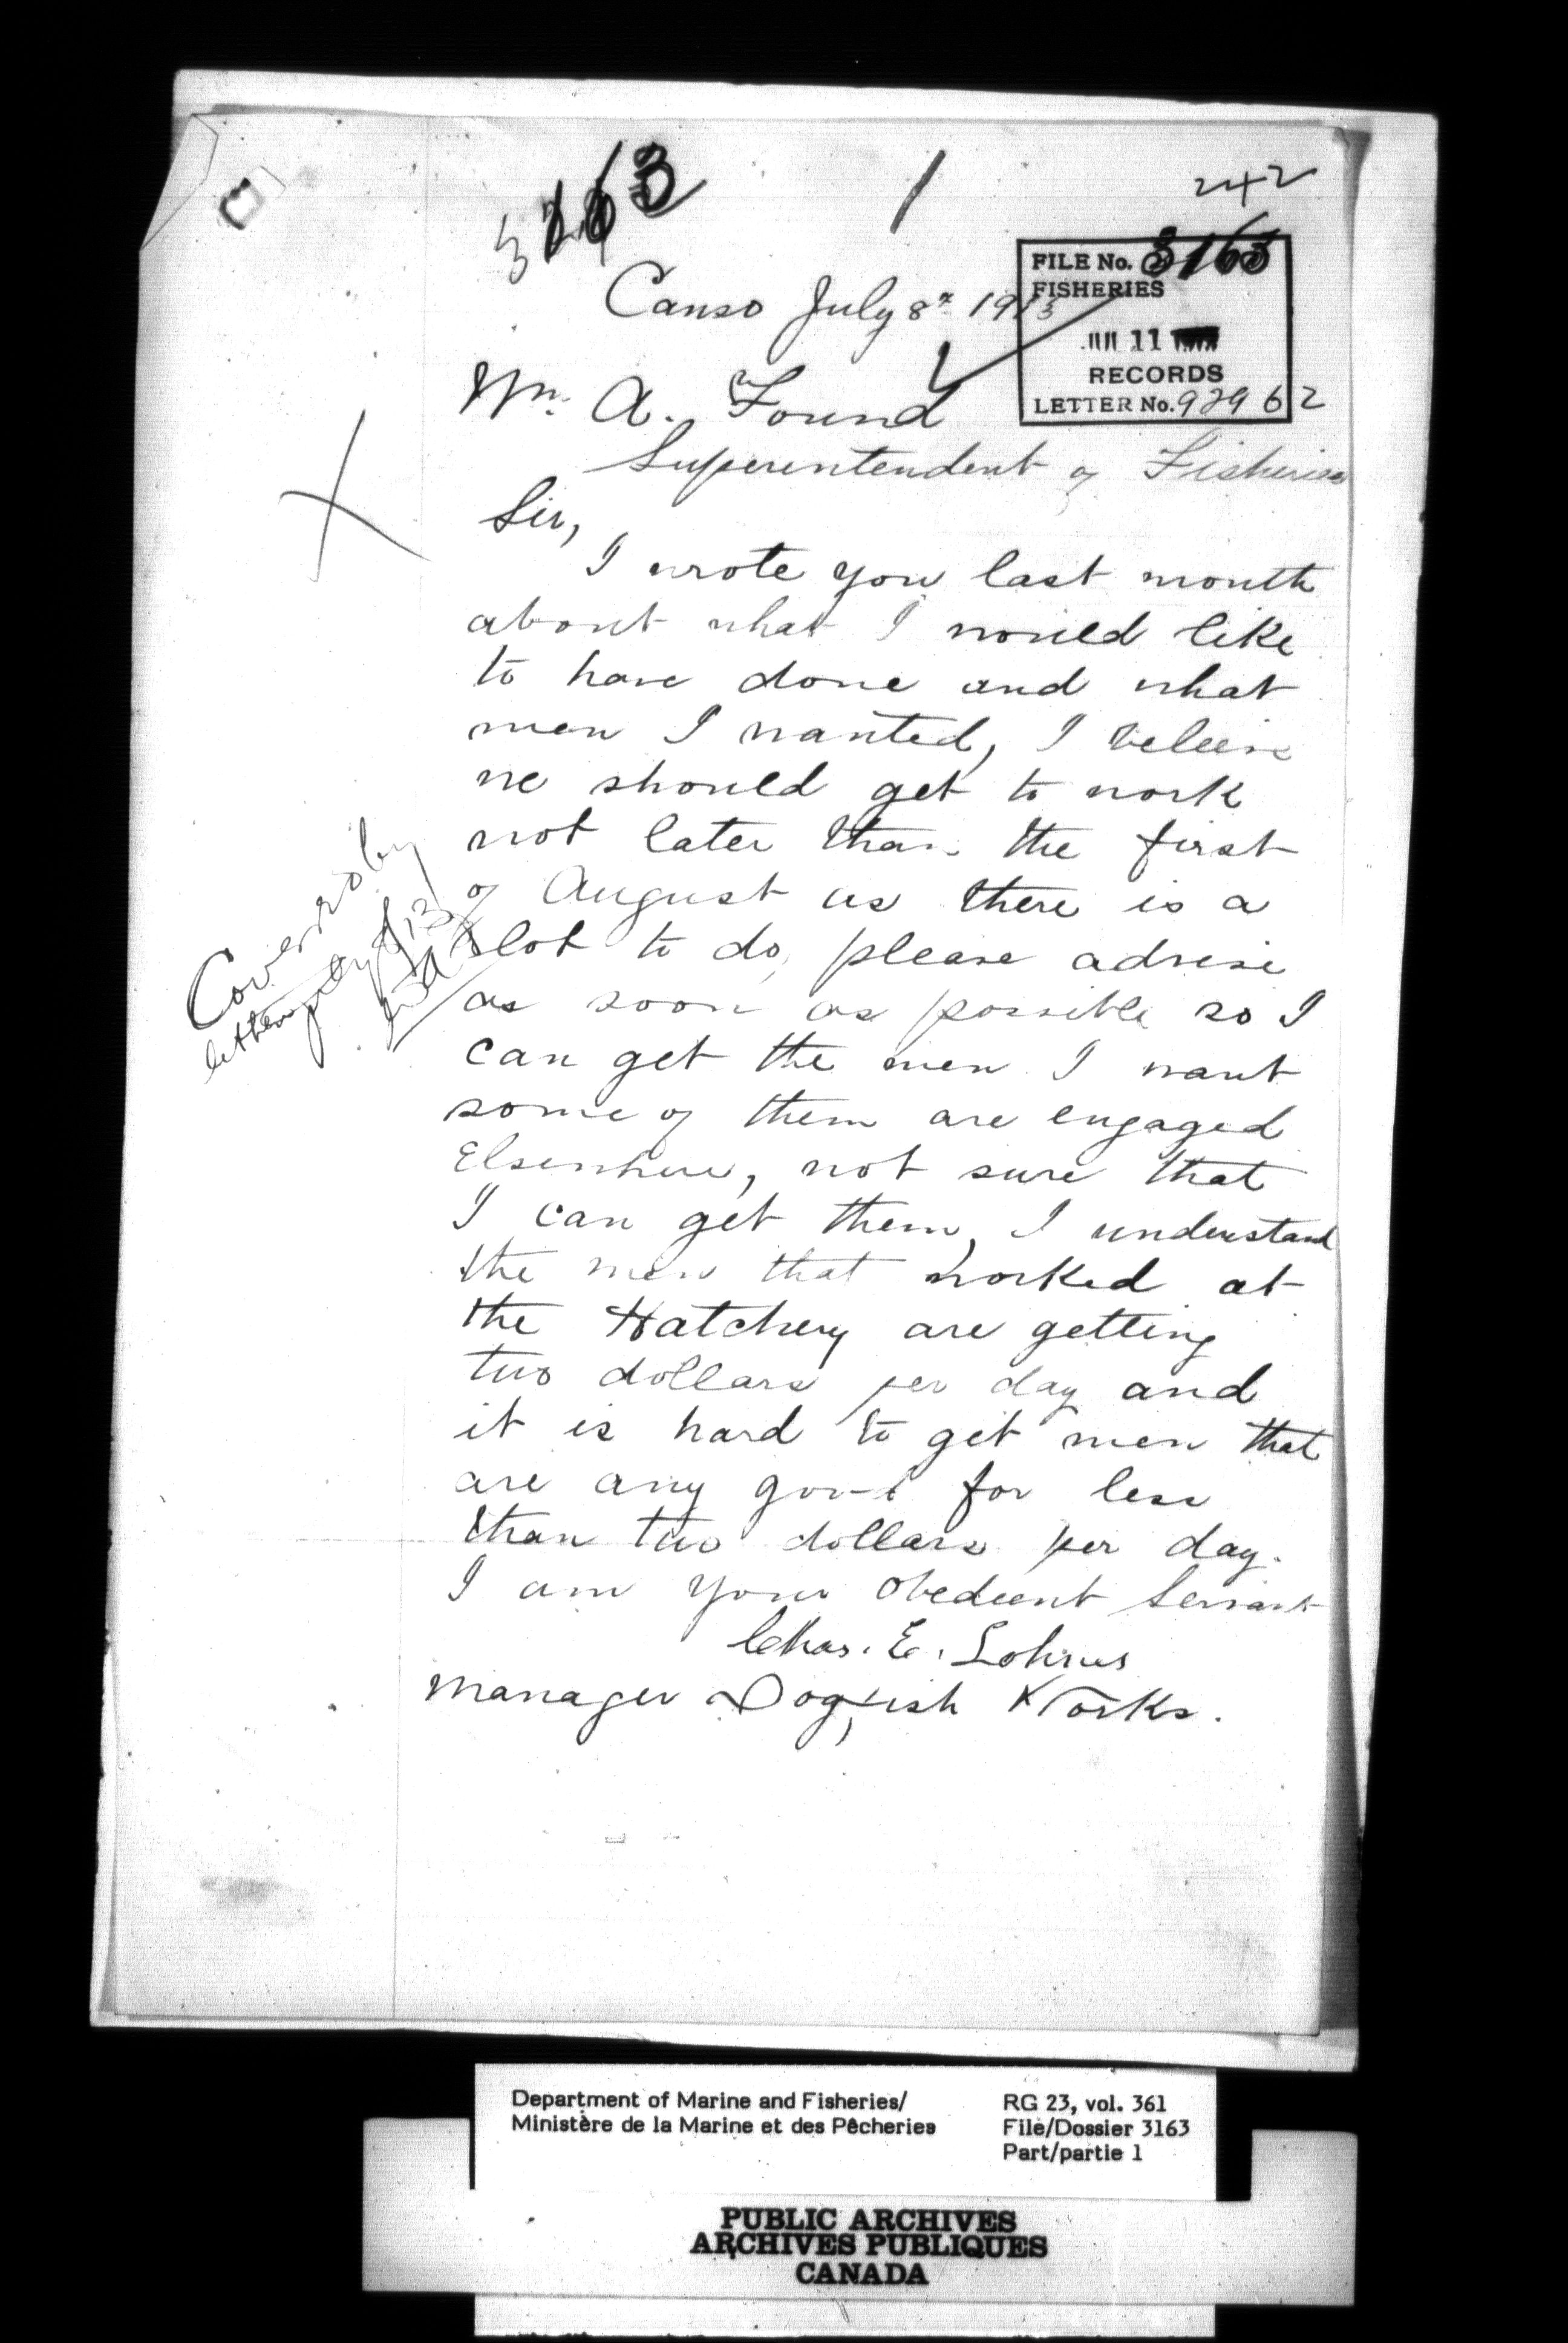 3163
242
FILE No. 3163
FISHERIES
Canso July 8th 1913
JUL 11
RECORDS
LETTER No. 92962
Wm. A. Found
Superentendent of Fisheries
Sir,
I wrote you last month
about what I would like
to have done and what
men I wanted, I beleive
we should get to work
not later than the first
of August as there is a
lot to do, please advise
as soon as possible so I
can get the men I want
some of them are engaged
Elsewhere, not sure that
I can get them, I understand
the men that worked at
the Hatchery are getting
two dollars per day and
it is hard to get men that
are any good for less
than two dollars per day.
I am your obedient Servant
Chas. E.
Manager Dogfish Works.
Covered by
letter
Department of Marine and Fisheries/
Ministère de la Marine et des Pêcheries
RG 23, vol. 361
File/Dossier 3163
Part/partie 1
PUBLIC ARCHIVES
ARCHIVES PUBLIQUES
CANADA